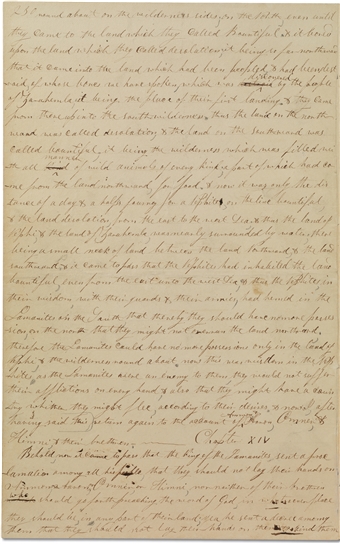 & round about on the wilderness side of the North even until
they came to the land which they called Bountiful & it bordered
upon the land which they called desolation it being so far northward
that it came into the land which had been peopled & had been destroyed
of whose bones we have spoken which was discovered by the people
of Zarahemla it being the place of their first landing & they came
from there up into the south wilderness thus the land on the north
ward was called desolation & the land on the southward was
called bountiful it being the wilderness which was filled with
all manner of wild animals of every kind a part of which had
come from the land northward for food & now it was only the dis
tance of a day & a half journey for a Nephite on the line bountiful
& the land desolation from the east to the west Sea & thus the land of
Nephi & the land of Zarahemla was nearly surrounded by water there
being a small neck of land between the land northward & the land
southward & it came to pass that the Nephites had inhabited the land
bountiful even from the east unto the west Sea & thus the Nephites in
their wisdom with their guards & their armies had hemmed in the
Lamanites on the South that thereby they should have no more posses
sion on the north that they might not overrun the land northward
therefore the Lamanites could have no more possessions only in the land of
Nephi & the wilderness round about now this was wisdom in the Neph
ites as the Lamanites were an enemy to them they would not suffer
their afflictions on every hand & also that they might have a coun
try whither they might flee according to their desires & now I after
having said this return again to the account of Ammon & Aaron Omner &
Himni & their brethren Chapter XIV
Behold now it came to pass that the King of the Lamanites sent a proc
lamation among all his people that they should not lay their hands on
Ammon or Aaron or Omner or Himni nor neither of their brethren
who should go forth preaching the word of God in whatsoever place
they should be in any part of their land yea he sent a decree among
them that they should not lay their hands on them to bind them